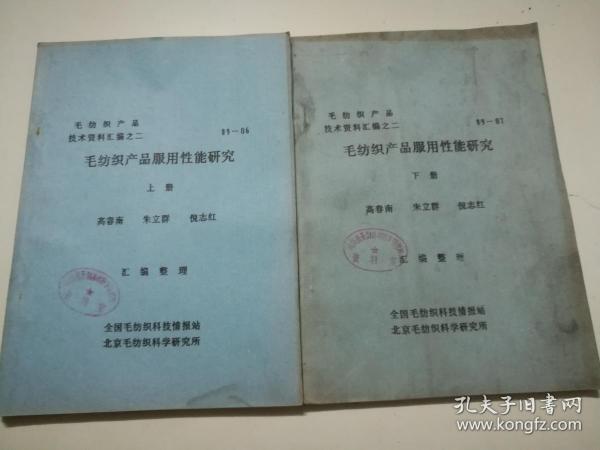 毛纺织产品
技术资料汇编之二
89—06
毛纺织产品服用性能研究
上册
高春南 朱立群 倪志红
汇编整理
全国毛纺织科技情报站
北京毛纺织科学研究所
毛纺织产品
技术资料汇编之二
89—07
毛纺织产品服用性能研究
下册
高春南 朱立群 倪志红
汇编整理
全国毛纺织科技情报站
北京毛纺织科学研究所
孔夫子旧书网
www.kongfz.com